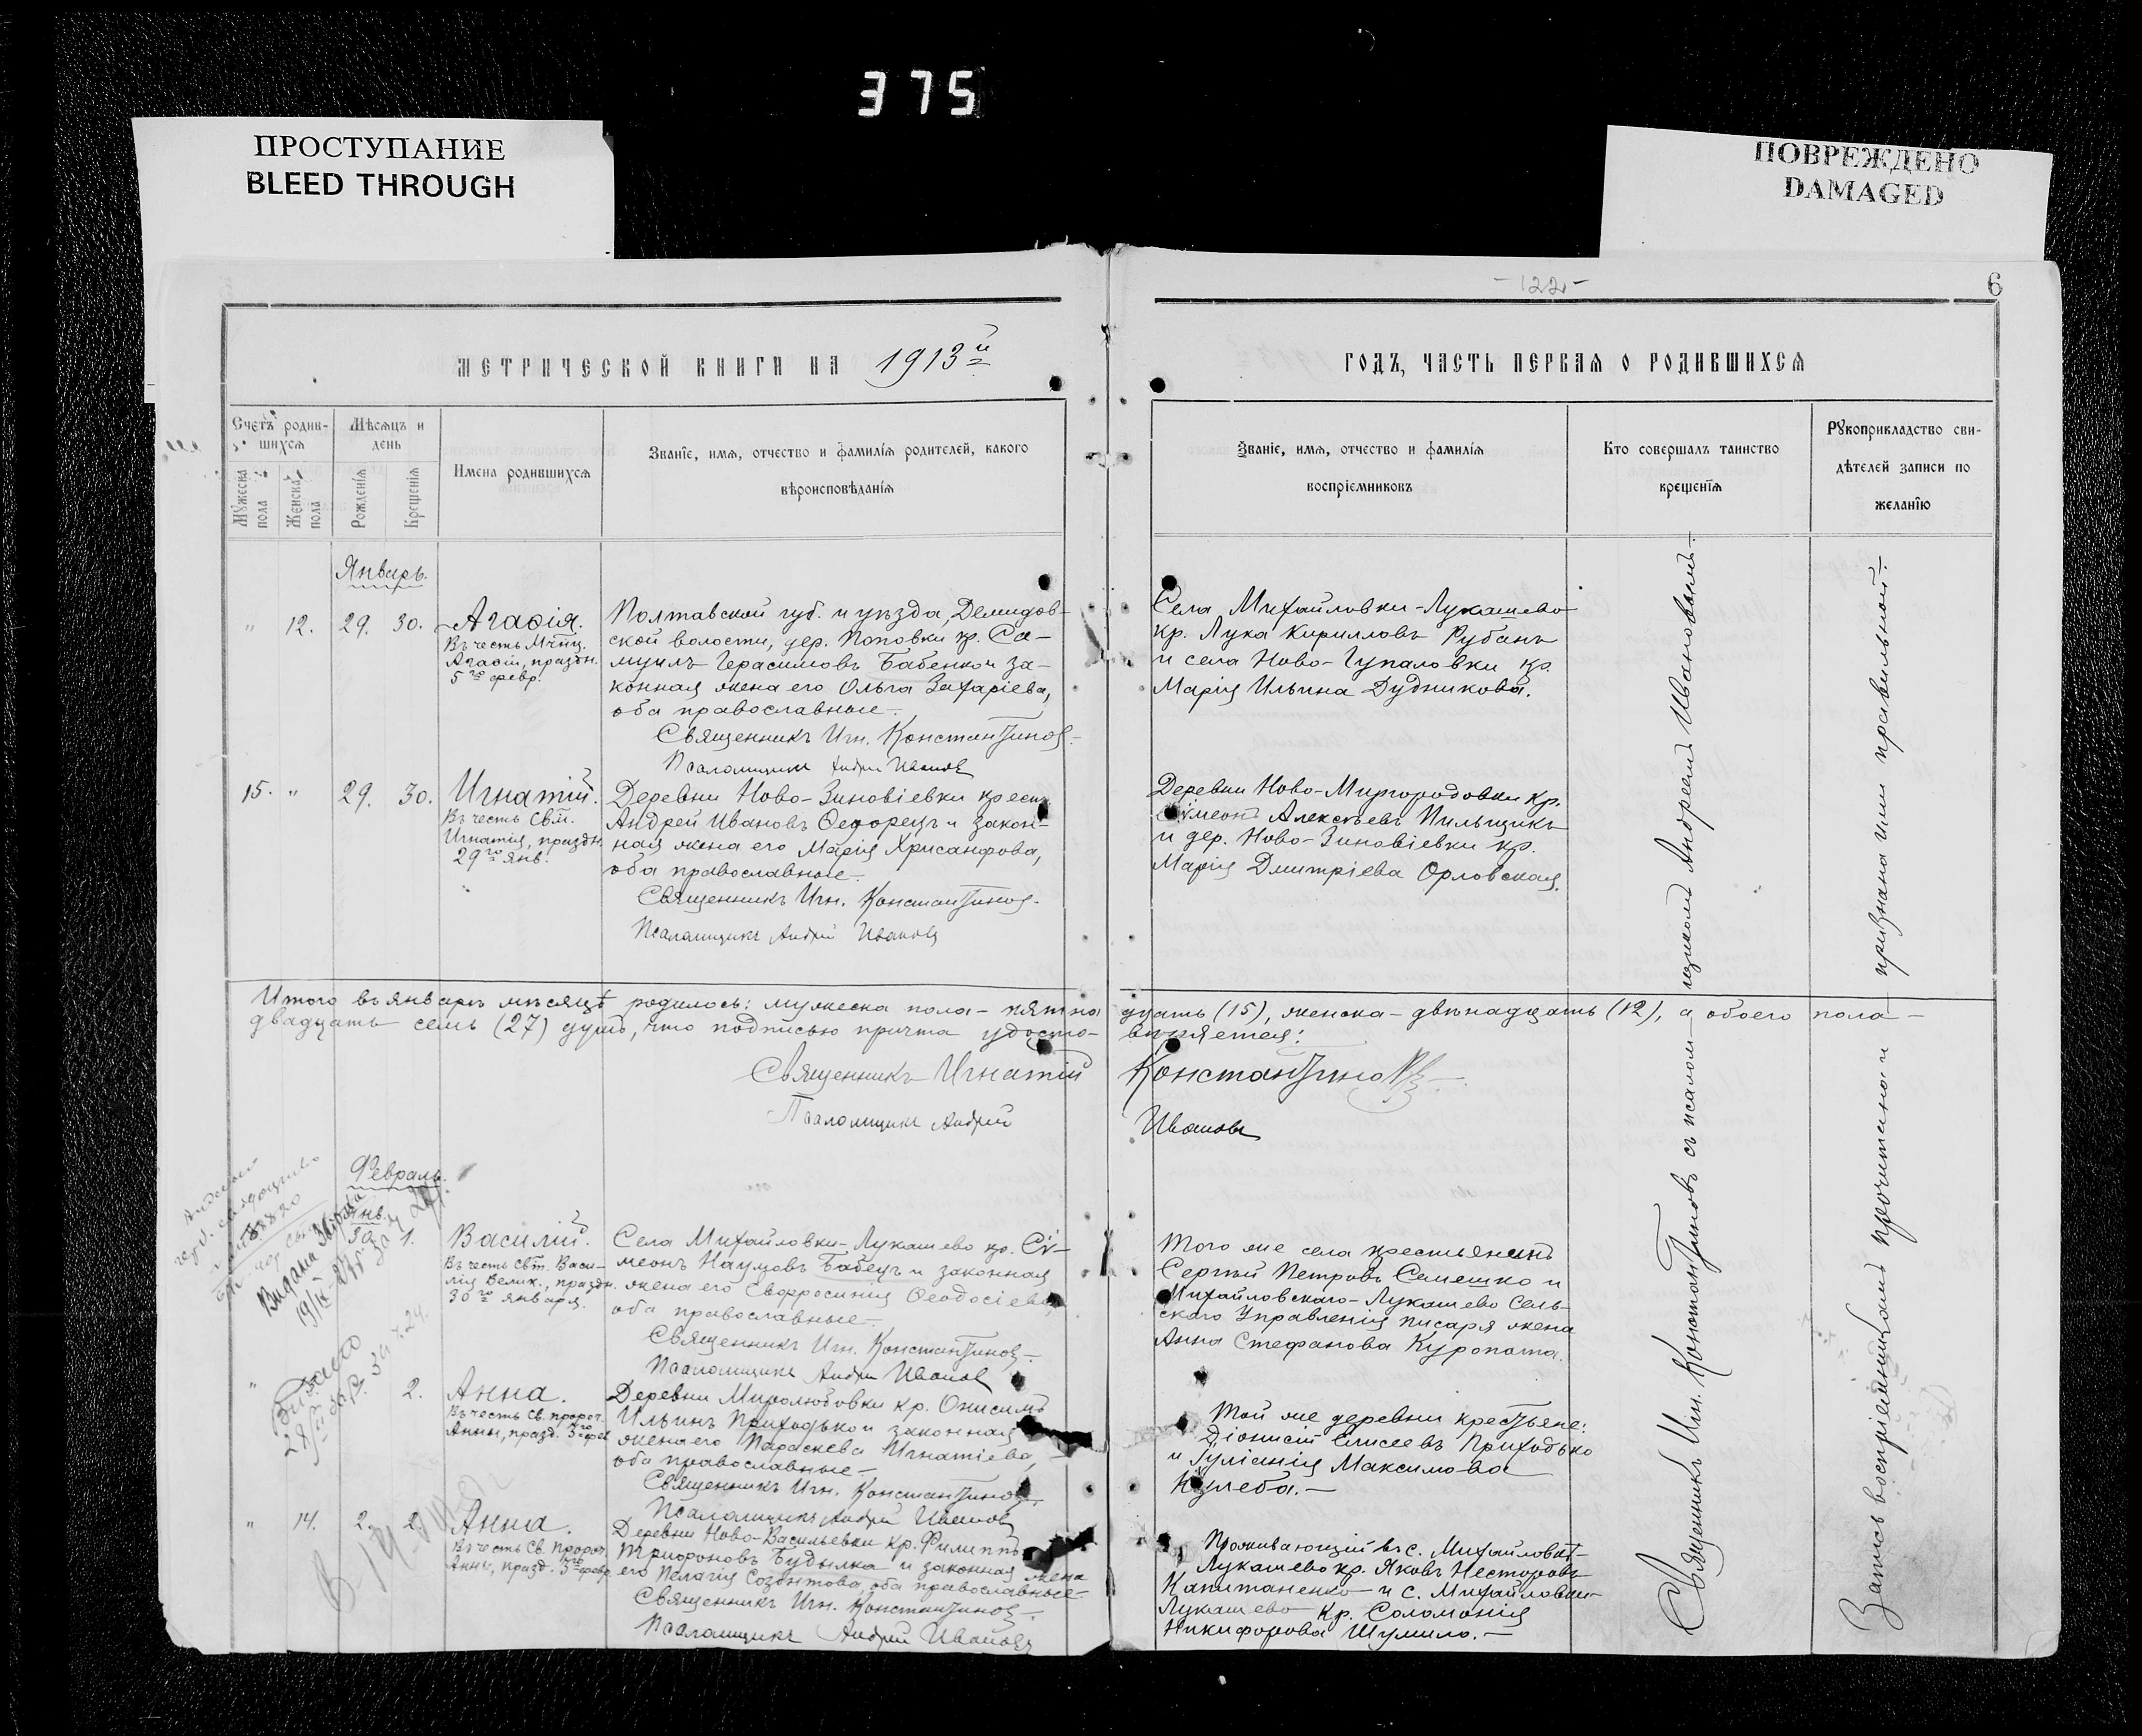 375
ПРОСТУПАНИЕ
BLEED THROUGH
ПОВРЕЖДЕНО
DAMAGED
- 122 -
6
МЕТРИЧЕСКОЙ КНИГИ НА 1913й
ГОДЪ, ЧАСТЬ ПЕРВАЯ О РОДИВШИХСЯ
Счетъ родив-
шихся
Мужеска пола
Женска пола
Мѣсяцъ и
день
Рожденія
Крещенія
Имена родившихся
Званіе, имя, отчество и фамилія родителей, какого
вѣроисповѣданія
Званіе, имя, отчество и фамилія
воспріемниковъ
Кто совершалъ таинство
крещенія
Рукоприкладство сви-
дѣтелей записи по
желанію
Январь.
" 12. 29. 30.
Агаѳія.
Въ честь Мчнц.
Агаѳіи, праздн.
5го февр.
Полтавской губ. и уѣзда, Демидов-
ской волости, дер. Поповки кр. Са-
муилъ Герасимовъ Бабенко и за-
конная жена его Ольга Захаріева,
оба православные.
Священникъ Игн. Константинов.
Псаломщикъ Андрей Иванов
Села Михайловки-Лукашево
кр. Лука Кирилловъ Рубанъ
и села Ново-Гупаловки кр.
Марія Ильина Дудникова.
15. " 29. 30.
Игнатій.
Въ честь Свт.
Игнатія, праздн.
29го янв.
Деревни Ново-Зиновіевки крест.
Андрей Ивановъ Ѳедорецъ и закон-
ная жена его Марія Хрисанфова,
оба православные.
Священникъ Игн. Константинов.
Псаломщикъ Андрей Ивановъ
Деревни Ново-Миргородовки кр.
Сѵмеонъ Алексѣевъ Пильщикъ
и дер. Ново-Зиновіевки кр.
Марія Дмитріева Орловская.
Итого въ январѣ мѣсяцѣ родилось: мужеска пола - пятнадцать (15), женска - двѣнадцать (12), а обоего пола -
двадцать семь (27) душъ, что подписью причта удостовѣряется:
Священникъ Игнатій Константиновъ
Псаломщикъ Андрей Ивановъ
Февраль.
Янв.
30. 1.
Василій.
Въ честь Свт. Васи-
лія Велик., праздн.
30го января.
Села Михайловки-Лукашево кр. Сѵ-
меонъ Наумовъ Бабецъ и законная
жена его Евфросинія Ѳеодосіева,
оба православные.
Священникъ Игн. Константинов.
Псаломщикъ Андрей Иванов
Того же села крестьянинъ
Сергѣй Петровъ Семешко и
Михайловскаго-Лукашево Сель-
скаго Управленія писаря жена
Анна Стефанова Куропата.
" 2.
Анна.
Въ честь Св. пророч.
Анны, празд. 3го фев.
Деревни Миролюбовки кр. Онисимъ
Ильинъ Приходько и законная
жена его Параскева Игнатіева,
оба православные.
Священникъ Игн. Константинов.
Псаломщикъ Андрей Иванов
Той же деревни крестьяне:
Діонисій Елисеевъ Приходько
и Іуліанія Максимова
Кулеба.
" 14. 2. 2.
Анна.
Въ честь Св. Пророч.
Анны, празд. 3го февр.
Деревни Ново-Васильевки кр. Филиппъ
Трифоновъ Будылка и законная жена
его Пелагія Созонтова, оба православные.
Священникъ Игн. Константинов.
Псаломщикъ Андрей Ивановъ
Проживающій въ с. Михайловкѣ-
Лукашево кр. Яковъ Несторовъ
Капитаненко и с. Михайловки-
Лукашево кр. Соломонія
Никифорова Шумило.
Священникъ Игн. Константиновъ съ псаломщикомъ Андреемъ Ивановымъ.
Запись воспріемникамъ прочитана и признана ими правильной.